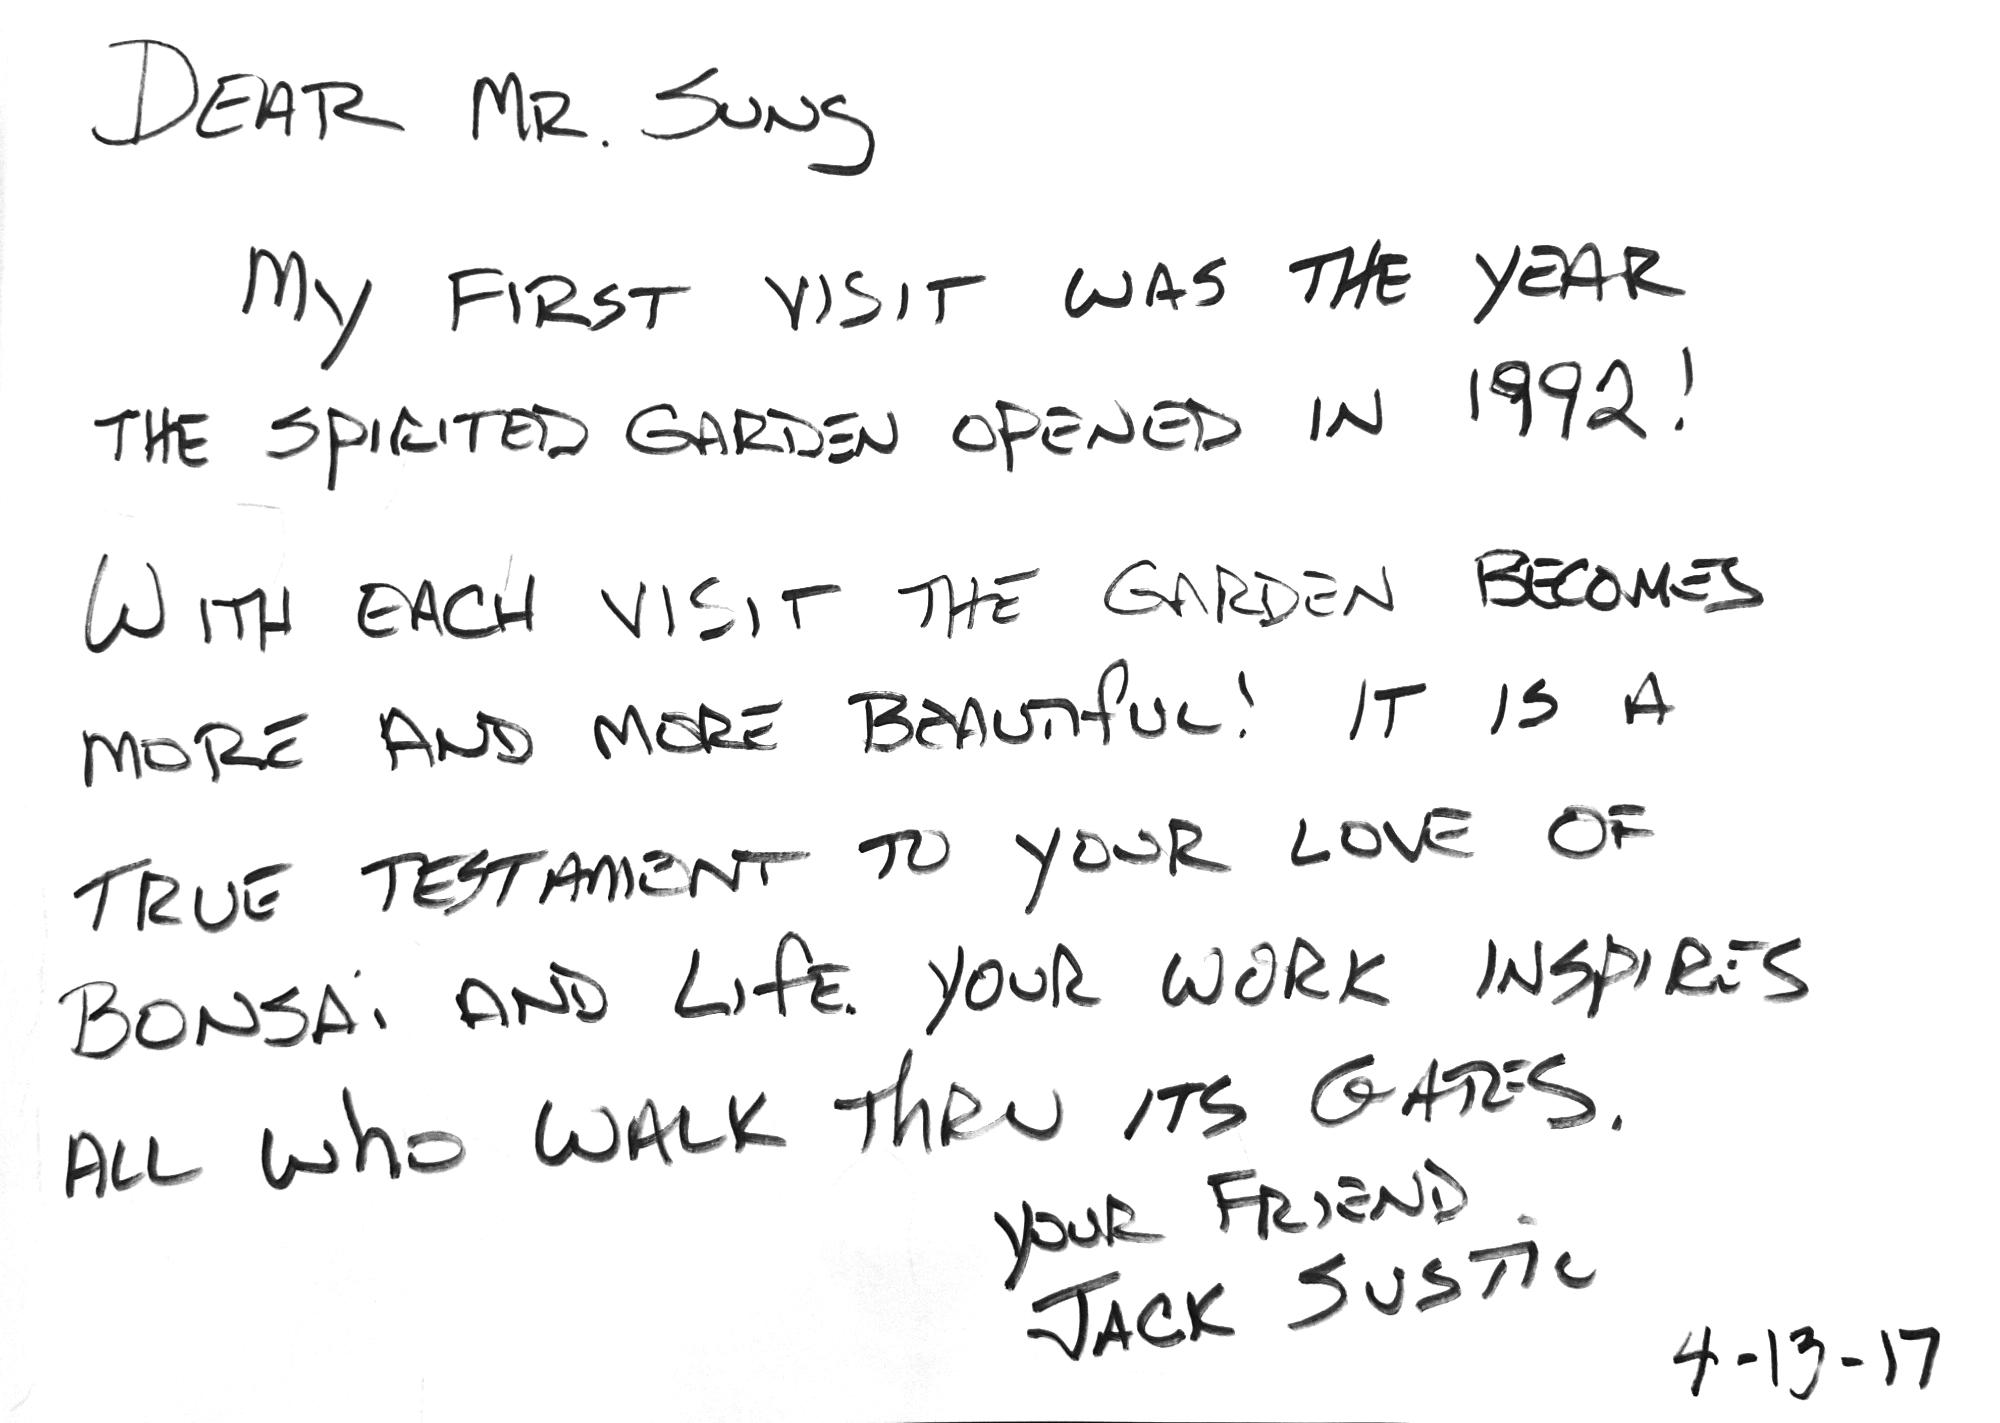 DEAR MR. SUNG
MY FIRST VISIT WAS THE YEAR
THE SPIRITED GARDEN OPENED IN 1992!
WITH EACH VISIT THE GARDEN BECOMES
MORE AND MORE BEAUTIFUL! IT IS A
TRUE TESTAMENT TO YOUR LOVE OF
BONSAi AND LIfE. YOUR WORK INSPIRES
ALL Who WALK ThRU ITS GATES.
YOUR FRIEND
JACK SUSTIC
4-13-17